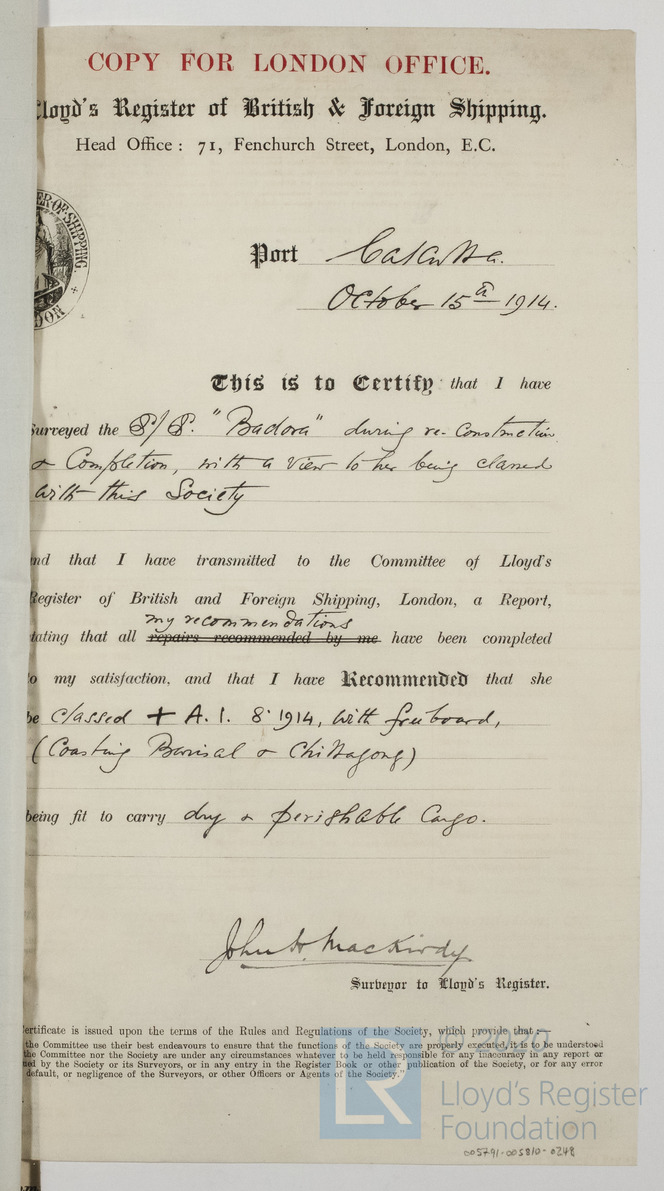 COPY FOR LONDON OFFICE.
Lloyd's Register of British & Foreign Shipping.
Head Office: 71, Fenchurch Street, London, E.C.
ER OF SHIPPING.
DON
Port Calcutta.
October 15th 1914.
This is to Certify that I have
Surveyed the S/S. "Badora" during re-construction
& Completion, with a view to her being classed
with this Society
and that I have transmitted to the Committee of Lloyd's
Register of British and Foreign Shipping, London, a Report,
my recommendations
tating that all repairs recommended by me have been completed
to my satisfaction, and that I have Recommended that she
be classed + A. 1. 8. 1914, with freeboard,
(Coasting Barisal & Chittagong)
being fit to carry dry & perishable Cargo.
John H. MacKirdy
Surveyor to Lloyd's Register.
ertificate is issued upon the terms of the Rules and Regulations of the Society, which provide that:—
the Committee use their best endeavours to ensure that the functions of the Society are properly executed, it is to be understood
the Committee nor the Society are under any circumstances whatever to be held responsible for any inaccuracy in any report or
ued by the Society or its Surveyors, or in any entry in the Register Book or other publication of the Society, or for any error
default, or negligence of the Surveyors, or other Officers or Agents of the Society."
LR
© 2020
Lloyd's Register
Foundation
005791-005810-0248